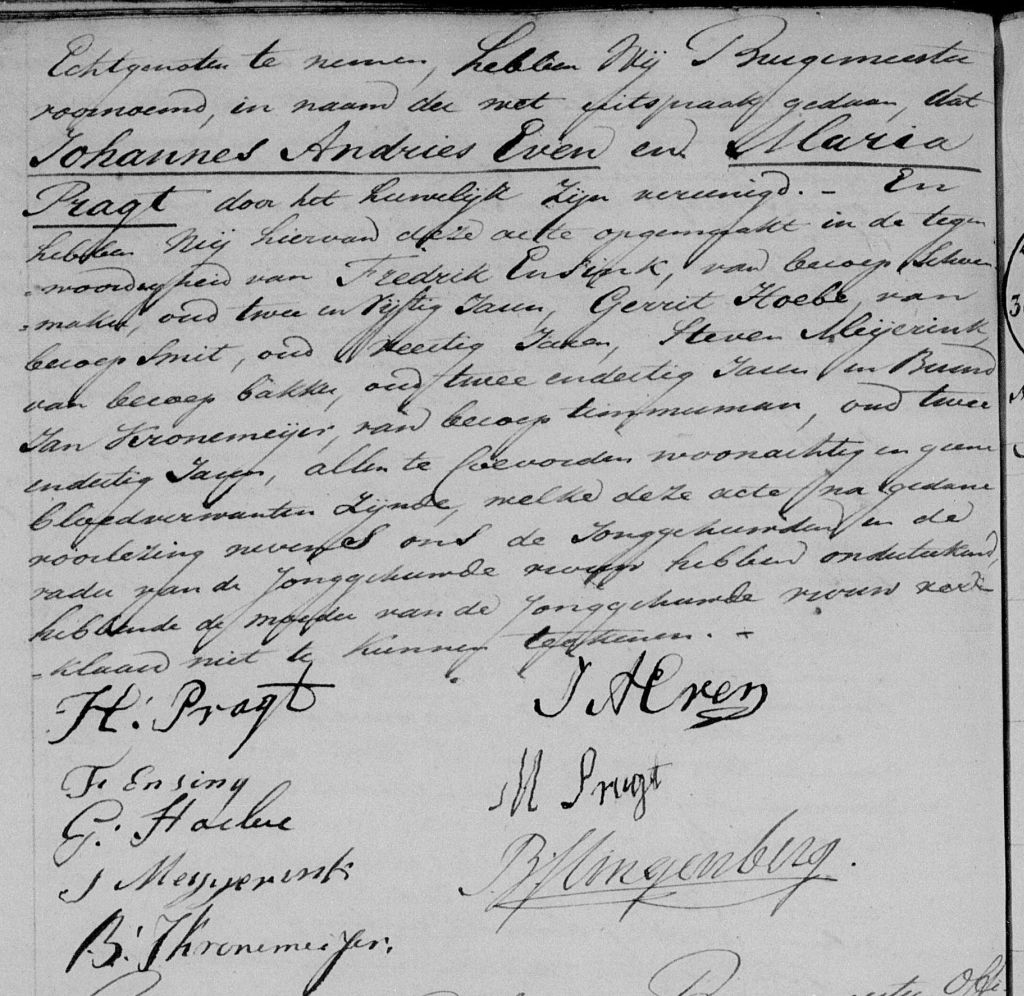 Echtgenoten te nemen, hebben Wij Burgemeester
voornoemd, in naam der wet uitspraak gedaan, dat
Johannes Andries Even en Maria
Pragt door het huwelijk zijn vereenigd. - En
hebben Wij hiervan deze acte opgemaakt in de tegen
-woordigheid van Fredrik Ensink, van beroep Schoen
-maker, oud twee en Vijftig Jaren, Gerrit Hoebe, van
beroep Smit, oud Veertig Jaren, Steven Meijerink,
van beroep bakker, oud twee endertig Jaren en Berend
Jan Kronemeijer, van beroep timmerman, oud twee
endertig Jaren, allen te Coevorden woonachtig en geene
bloedverwanten zijnde, welke deze acte na gedane
voorlezing nevens ons de Jonggehuwden en de
vader van de Jonggehuwde vrouw hebben onderteekend,
hebbende de moeder van de Jonggehuwde vrouw ver
-klaard niet te kunnen teekenen. -
H: Pragt
J A Even
F: Ensing
M Pragt
G: Hoebe
J Meyyerink
B Slingenberg.
B: J Kronemeijer.